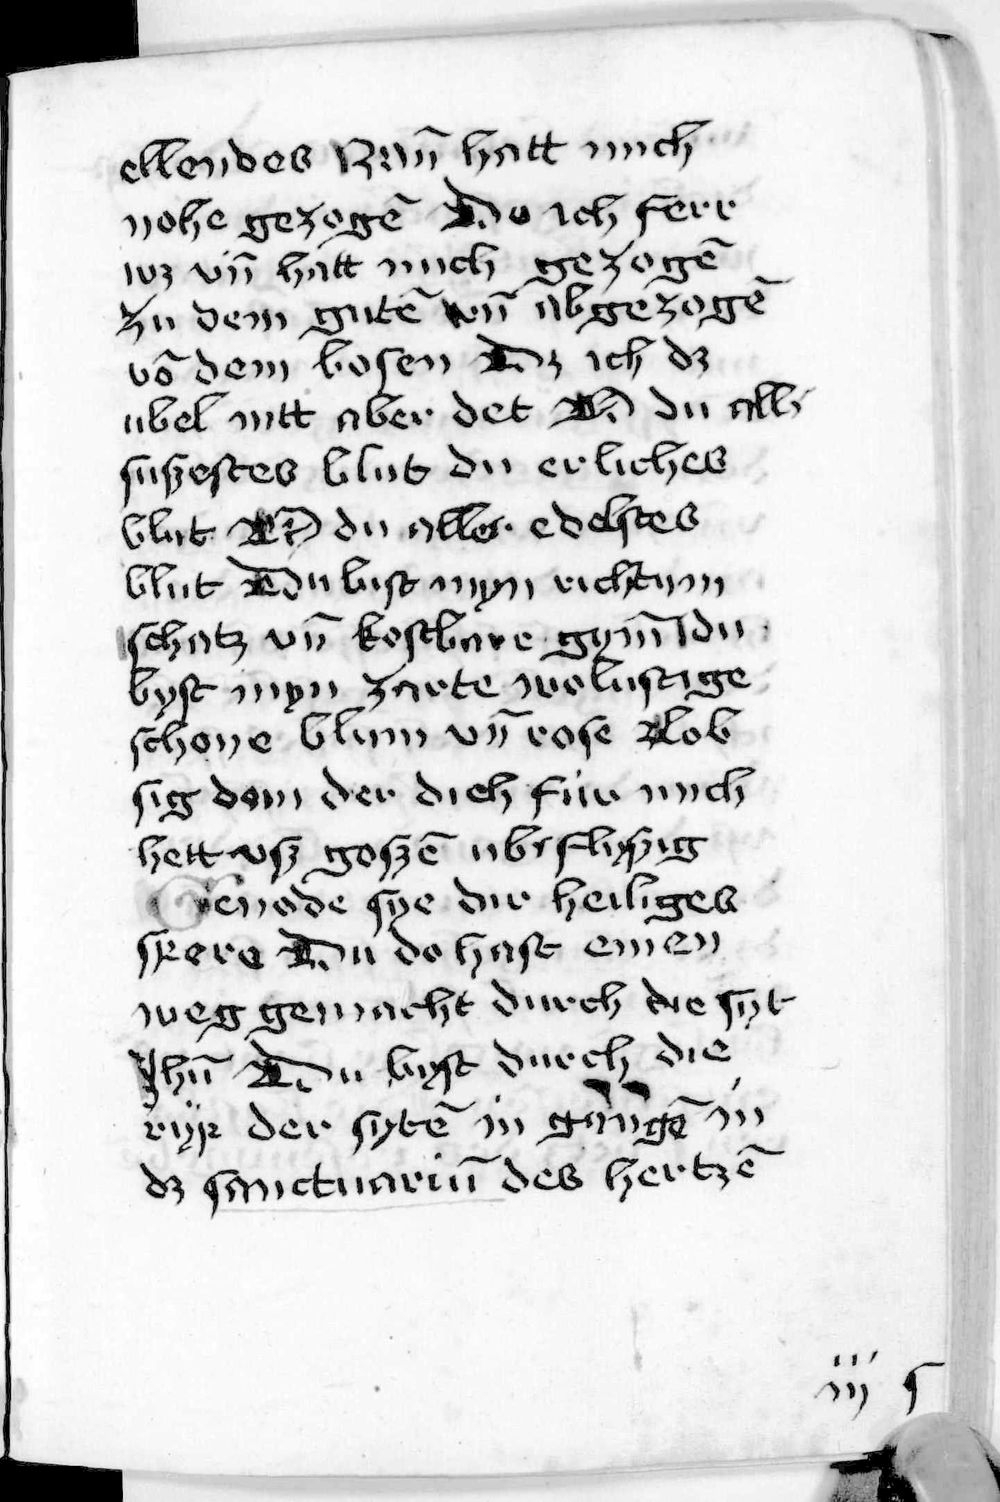 ellendes hatt mich
nohe gezogē Do ich ferr
wz vn̄ hatt mich gezogē
zu dem gutē vn̄ abgezogē
vō dem bosen Dz ich dz
ubel nitt aber det O du all
suszestes blut du erliches
blut O du aller edelstes
blut Du bist myn richtum
schatz vn̄ kostbare gym̄ du
byst myn zarte wolustige
schone blum vn̄ rose Lob
sig dem der dich für mich
hett vsz goszē flyszig
Genode sye dir heiliges
spere Du do hast einen
weg gemacht durch die syt
Jhū Du byst durch die
der sytē in gangē in
dz sanctuariū des hertzē
iij